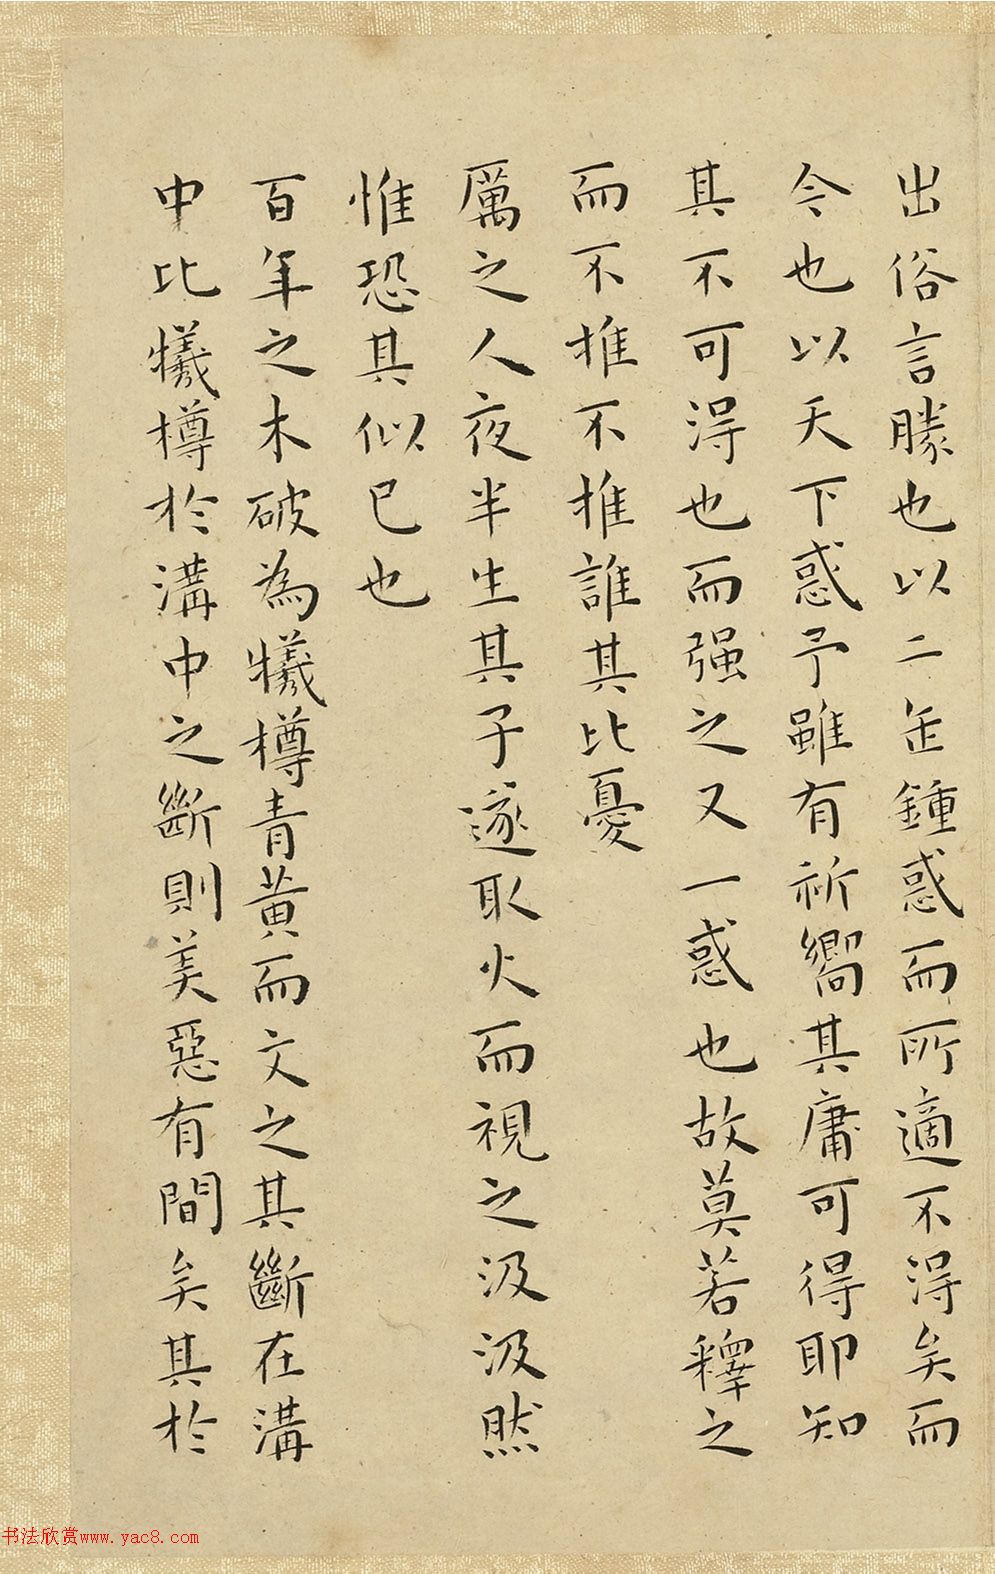 出俗言勝也以二缶鍾惑而所適不得矣而
今也以天下惑予雖有祈嚮其庸可得耶知
其不可得也而强之又一惑也故莫若釋之
而不推不推誰其比憂
厲之人夜半生其子遂取火而視之汲汲然
惟恐其似已也
百年之木破為犧樽青黃而文之其斷在溝
中比犧樽於溝中之斷則美惡有間矣其於
书法欣赏www.yac8.com